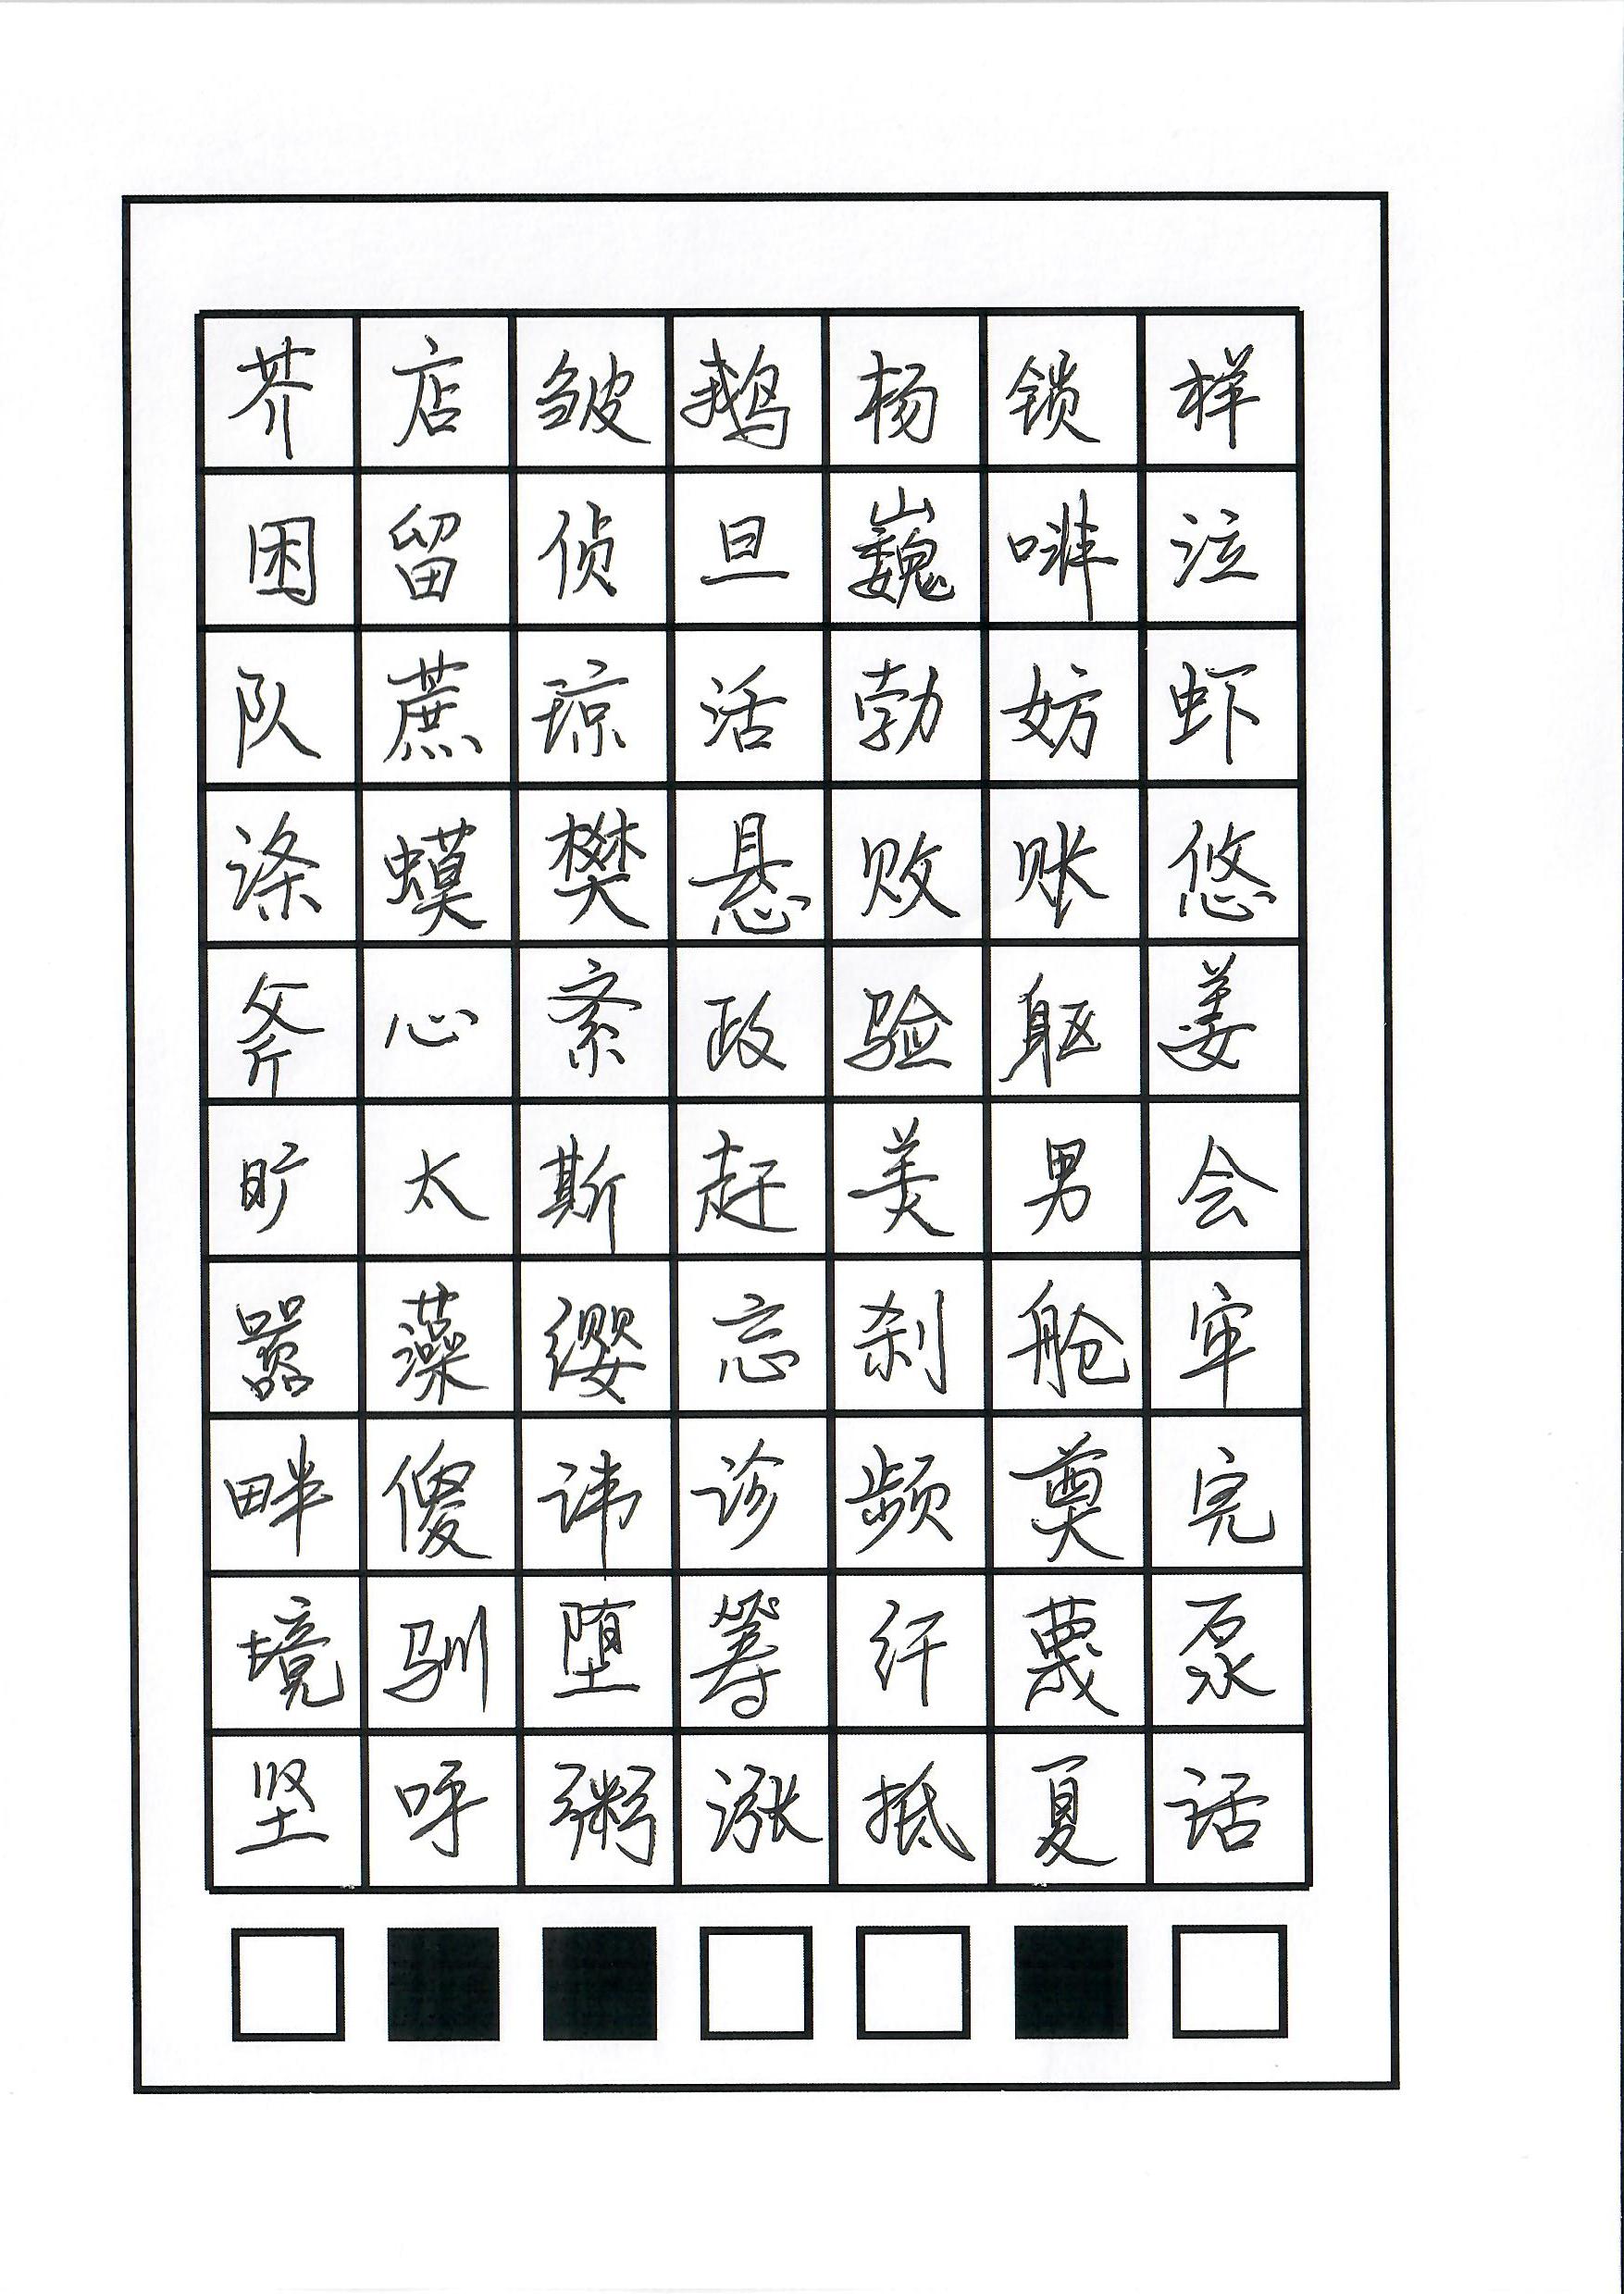 芥店皱鹅杨锁样
困留侦旦巍啡泣
队蔗琼活勃妨虾
涤蟆樊悬败账悠
斧心紊政验躯姜
旷太斯赶美男会
嚣藻缨忘刹舱牢
畔傻讳诊频奠完
境驯堕筹纤蔑泵
坚呼粥涨抵夏话